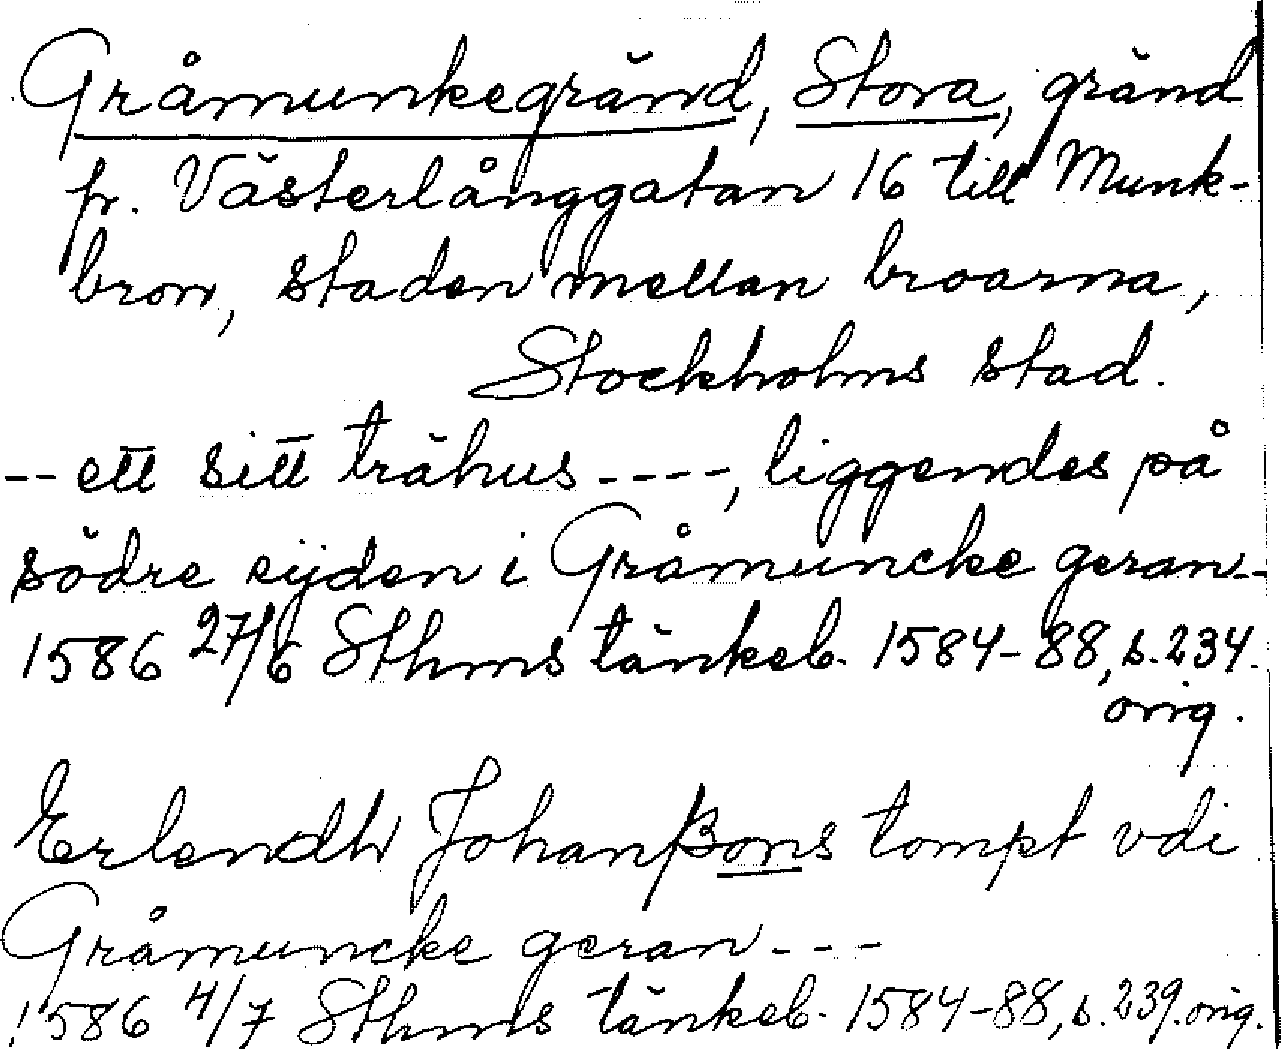 Gråmunkegränd, Stora, gränd
fr. Västerlånggatan 16 till Munk-
bron, staden mellan broarna,
Stockholms stad.
-- ett sitt trähus ----, liggendes på
södre sijden i Gråmuncke geran--
1586 27/6 Sthms tänkeb. 1584-88, s. 234.
orig.
Erlendh Johanßons tompt vdi
Gråmuncke geran ---
1586 4/7 Sthms tänkeb. 1584-88, s. 239. orig.